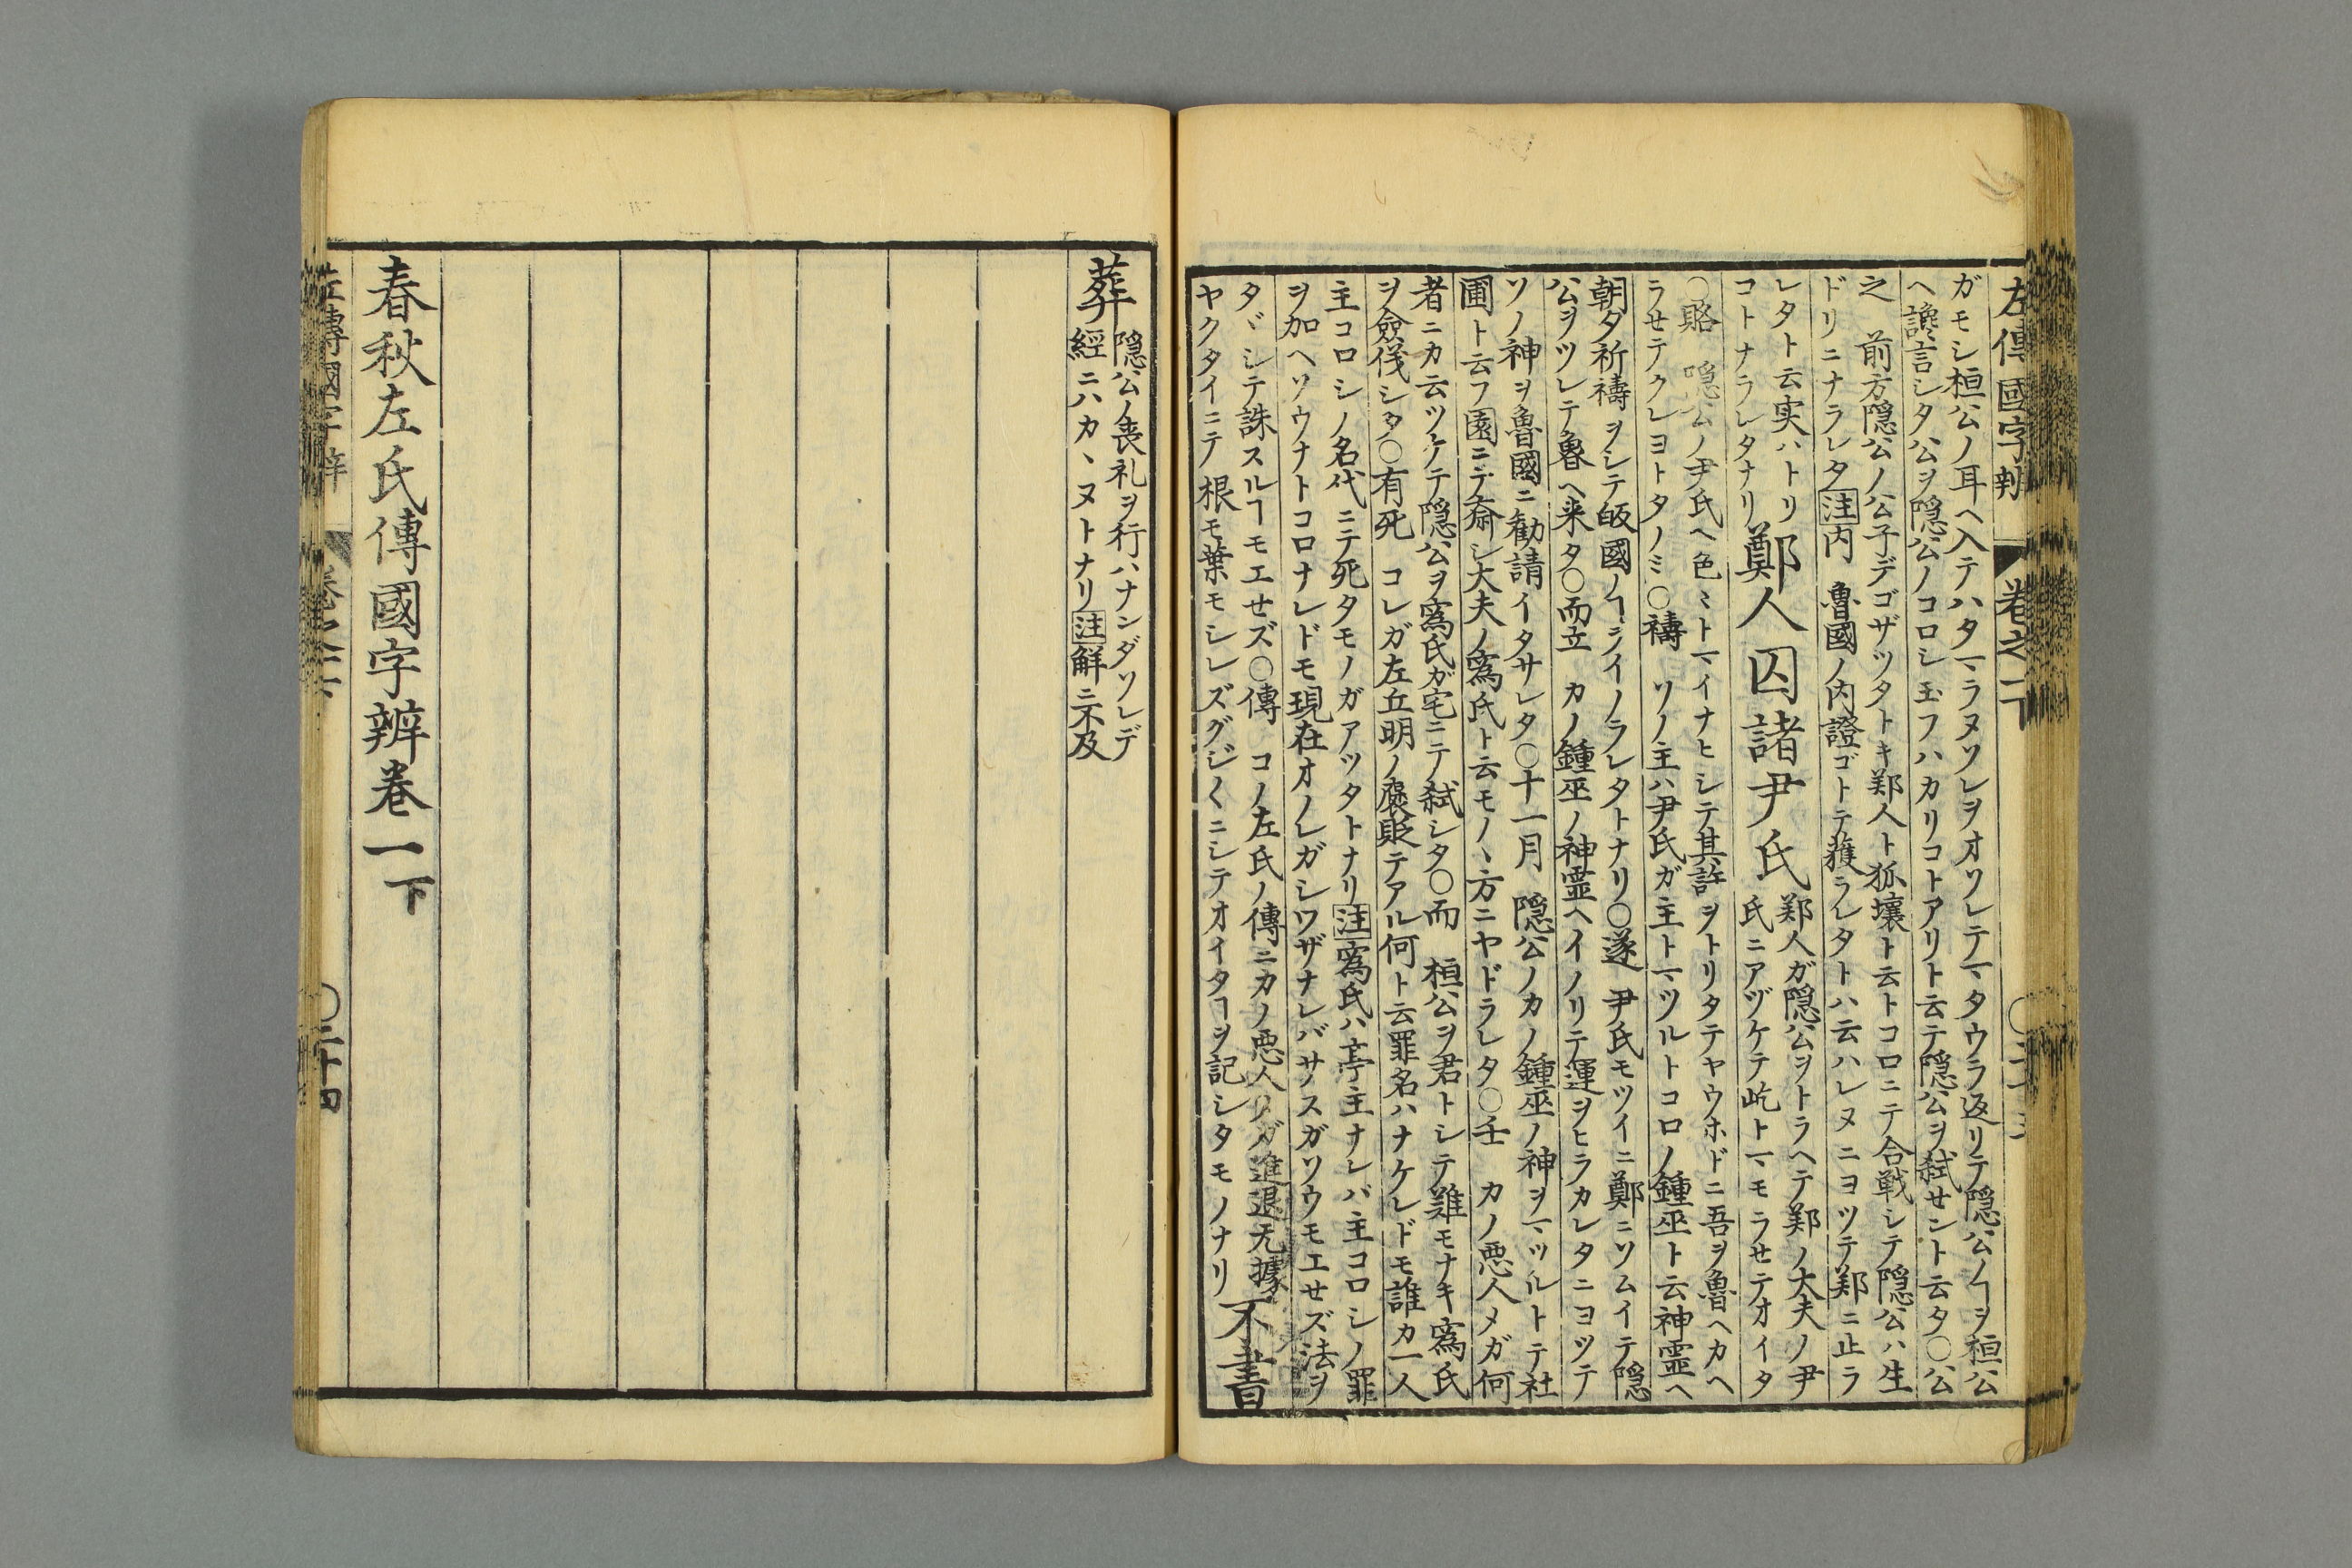 左傳國字辨 卷之一下
ガモシ桓公ノ耳ヘ入テハタマラヌソレヲオソレテマタウラ返リテ隠公ノヿヲ桓公
ヘ讒言シタ公ヲ隠公ノコロシ玉フハカリコトアリト云テ隠公ヲ弑せント云タ〇公
之 前方隠公ノ公子デゴザツタトキ鄭人ト狐壤ト云トコロニテ合戦シテ隠公ハ生
ドリニナラレタ注内 魯國ノ内證ゴトテ獲ラレタトハ云ハレヌニヨツテ鄭ニ止ラ
レタト云実ハトリ
コトナラレタナリ
鄭人囚諸尹氏
鄭人ガ隠公ヲトラヘテ鄭ノ大夫ノ尹
氏ニアヅケテ屹トマモラせテオイタ
〇賂 隠公ノ尹氏ヘ色〻トマイナヒシテ其許ヲトリタテヤウホドニ吾ヲ魯ヘカヘ
ラせテクレヨトタノミ〇禱 ソノ主ハ尹氏ガ主トマツルトコロノ鍾巫ト云神霊ヘ
朝夕祈禱ヲシテ皈國ノヿヲイノラレタトナリ〇遂 尹氏モツイニ鄭ニソムイテ隠
公ヲツレテ魯ヘ来タ〇而立 カノ鍾巫ノ神霊ヘイノリテ運ヲヒラカレタニヨツテ
ソノ神ヲ魯國ニ勧請イタサレタ〇十一月 隠公ノカノ鍾巫ノ神ヲマツルトテ社
圃ト云フ園ニデ齋シ大夫ノ寪氏ト云モノヽ方ニヤドラレタ〇壬 カノ悪人メガ何
者ニカ云ツケテ隠公ヲ寪氏ガ宅ニテ弑シタ〇而 桓公ヲ君トシテ難モナキ寪氏
ヲ僉伐シタ〇有死 コレガ左丘明ノ褒貶テアル何ト云罪名ハナケレドモ誰カ一人
主コロシノ名代ニテ死タモノガアツタトナリ注寪氏ハ亭主ナレバ主コロシノ罪
ヲ加ヘソウナトコロナレドモ現在オノレガシワザナレバサスガソウモエせズ法ヲ
タヾシテ誅スルヿモエせズ〇傳 コノ左氏ノ傳ニカノ悪人ガ進退无據
ヤクタイニテ根モ葉モシレズグジ〱ニシテオイタヿヲ記シタモノナリ
不書
葬
隠公ノ喪礼ヲ行ハナンダソレデ
經ニハカヽヌトナリ注解ニ不及
春秋左氏傳國字辨卷一下
左傳國字辨 卷之一下 〇二十四